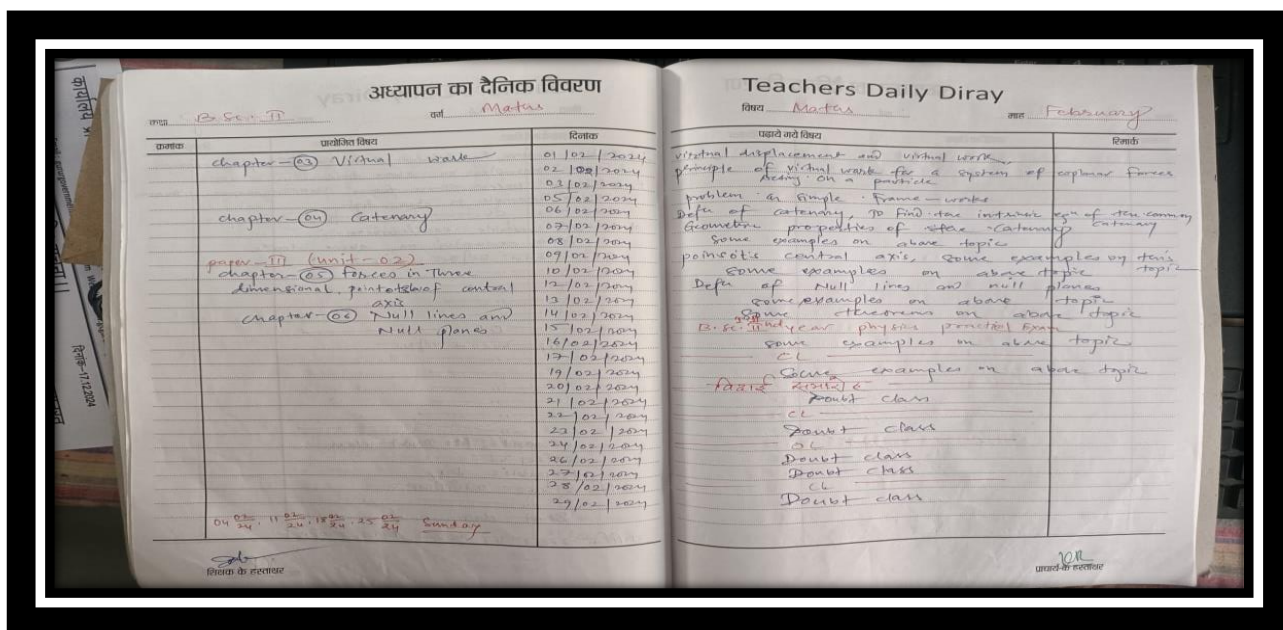 कार्यालय
दिनांक-17.12.2024
अध्यापन का दैनिक विवरण
कक्षा B.Sc. II वर्ग Maths
क्रमांक प्रायोजित विषय दिनांक
chapter-03 Virtual work 01/02/2024
02/02/2024
03/02/2024
05/02/2024
chapter-04 Catenary 06/02/2024
07/02/2024
08/02/2024
paper-II (unit-02) 09/02/2024
chapter-05 forces in Three 10/02/2024
dimensional, of central 12/02/2024
axis 13/02/2024
chapter-06 Null lines and 14/02/2024
Null planes 15/02/2024
16/02/2024
17/02/2024
19/02/2024
20/02/2024
21/02/2024
22/02/2024
23/02/2024
24/02/2024
26/02/2024
27/02/2024
28/02/2024
29/02/2024
04 02/24, 11 02/24, 18 02/24, 25 02/24 Sunday
शिक्षक के हस्ताक्षर
Teachers Daily Diray
विषय Maths माह February
पढ़ाये गये विषय रिमार्क
virtual displacement and virtual work,
principle of virtual work for a system of coplanar forces
Acting on a particle
problem on simple frame-works
Defn of catenary, To find the intrinsic eqn of the common catenary
Geometric properties of the catenary
Some examples on above topic
poinsot's central axis, some examples on this topic
some examples on above topic
Defn of Null lines and null planes
some examples on above topic
Some theorems on above topic
B.Sc. IInd year physics practical Exam
some examples on above topic
CL
Some examples on above topic
विदाई समारोह
Doubt class
CL
Doubt class
Doubt class
Doubt class
CL
Doubt class
प्राचार्य के हस्ताक्षर